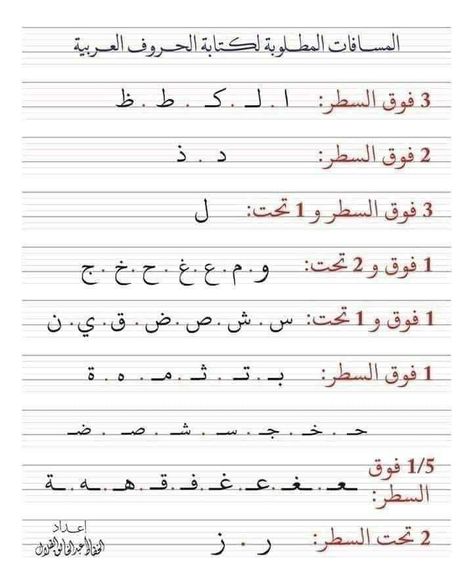 المسافات المطلوبة لكتابة الحروف العربية
3 فوق السطر: ا . لـ . كـ . ط . ظ
2 فوق السطر: د . ذ
3 فوق السطر و 1 تحت: ل
1 فوق و 2 تحت: و . م . ع . غ . ح . خ . ج
1 فوق و 1 تحت: س . ش . ص . ض . ق . ي . ن
1 فوق السطر: بـ . تـ . ثـ . مـ . ه . ة
حـ . خـ . جـ . سـ . شـ . صـ . ضـ
1/5 فوق السطر: ـعـ . ـغـ . عـ . غـ . فـ . قـ . هـ . ـه . ـة
2 تحت السطر: ر . ز
إعداد